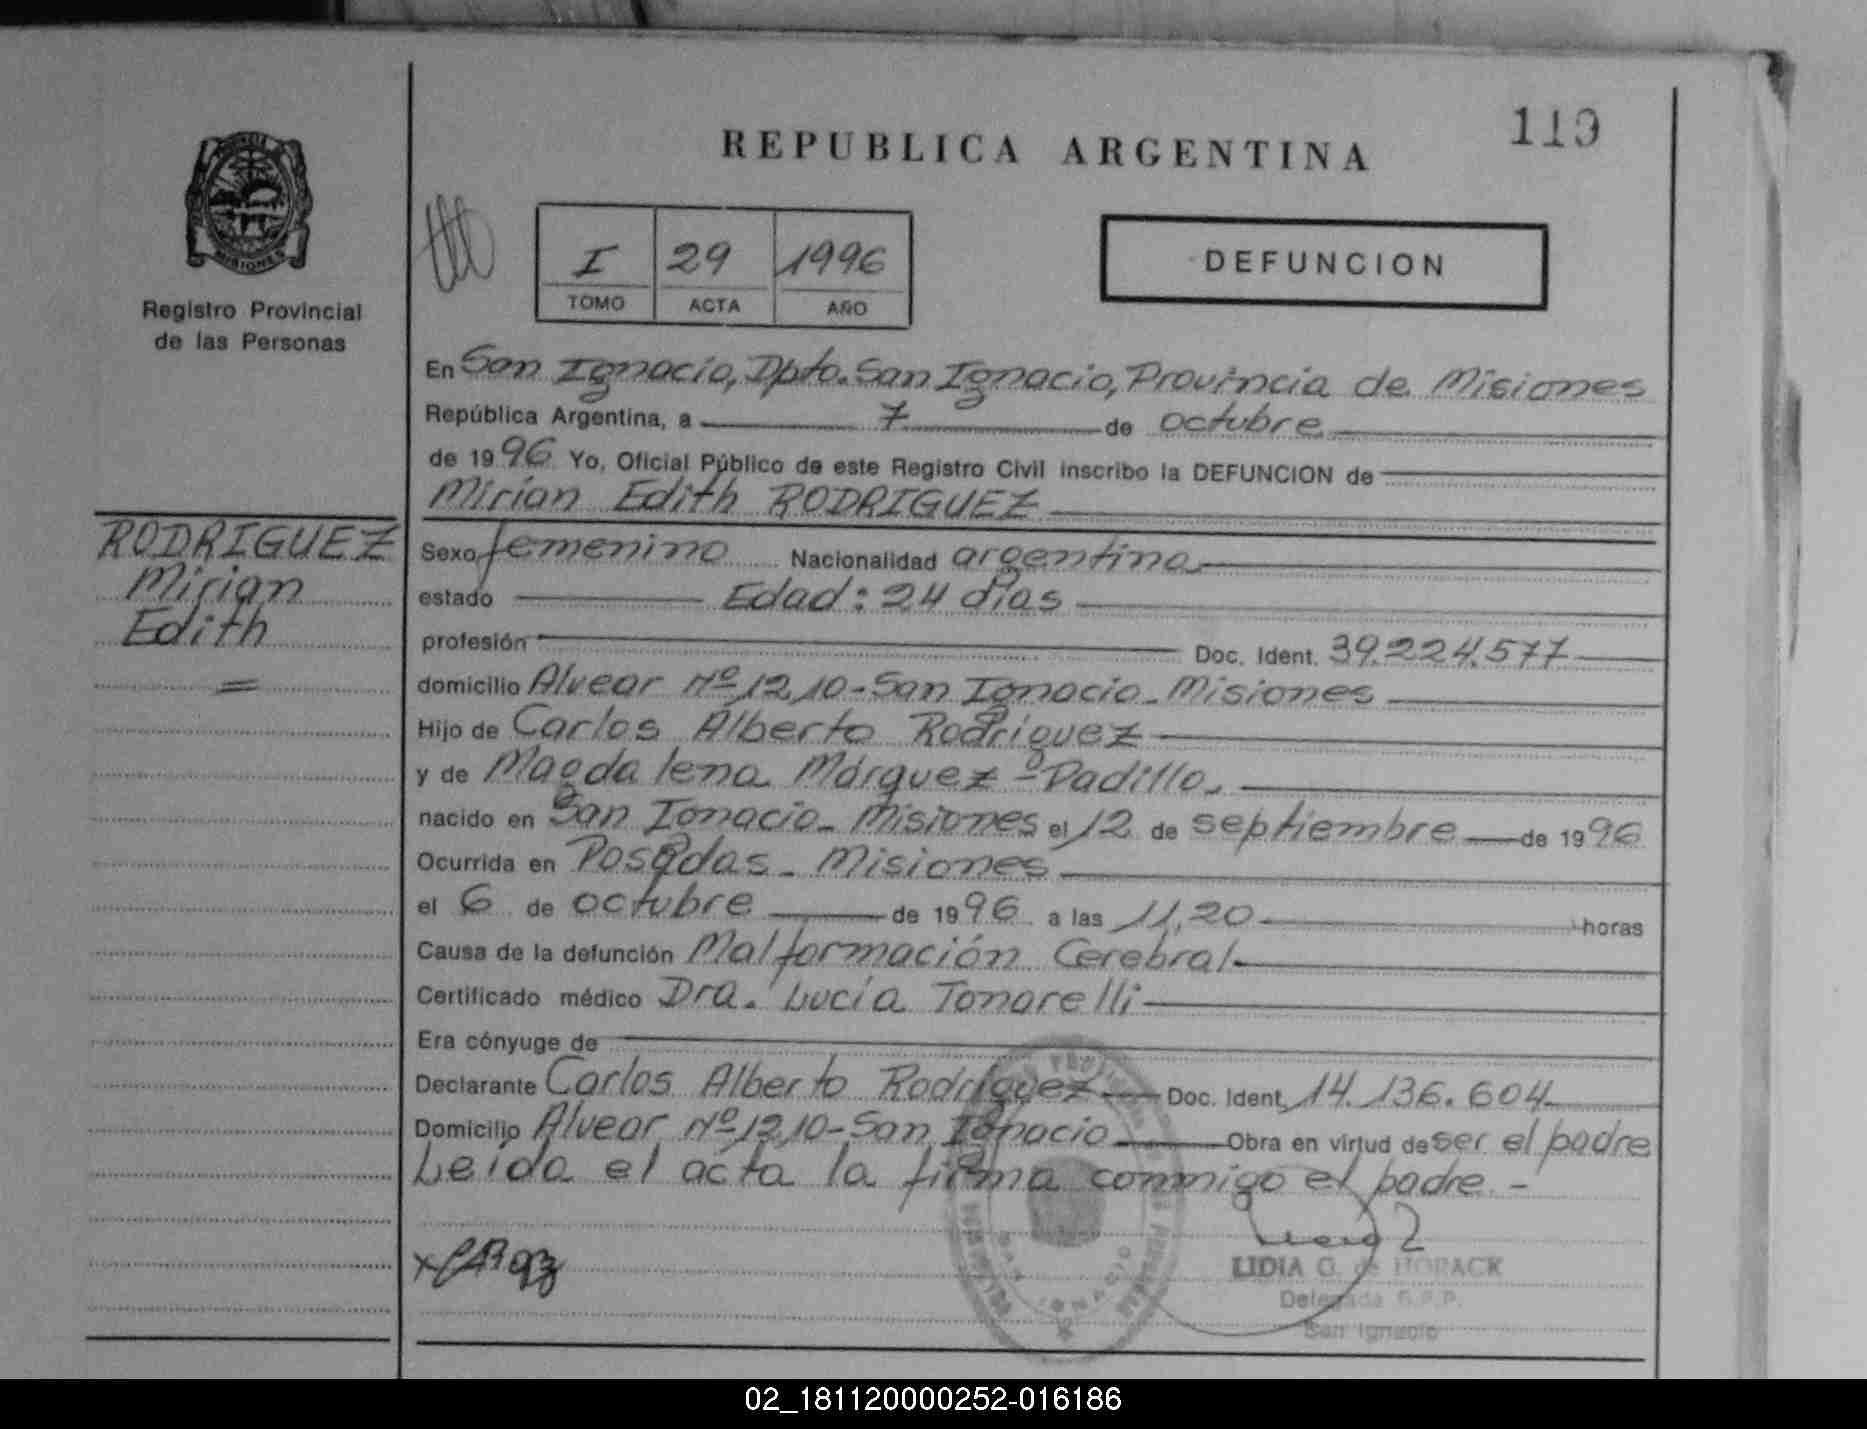 119
REPUBLICA ARGENTINA
MISIONES
Registro Provincial
de las Personas
I 29 1996
TOMO ACTA AÑO
DEFUNCION
En San Ignacio, Dpto. San Ignacio, Provincia de Misiones
República Argentina, a 7 de octubre
de 1996 Yo, Oficial Público de este Registro Civil inscribo la DEFUNCION de
Mirian Edith RODRIGUEZ
RODRIGUEZ
Mirian
Edith
=
Sexo femenino Nacionalidad argentina
estado Edad: 24 días
profesión Doc. Ident. 39.224.577
domicilio Alvear Nº 1210 - San Ignacio - Misiones
Hijo de Carlos Alberto Rodriguez
y de Magdalena Márquez - Padilla
nacido en San Ignacio - Misiones el 12 de septiembre de 1996
Ocurrida en Posadas - Misiones
el 6 de octubre de 1996 a las 11,20 horas
Causa de la defunción Malformación Cerebral
Certificado médico Dra. Lucía Tonarelli
Era cónyuge de
Declarante Carlos Alberto Rodríguez Doc. Ident. 14.136.604
Domicilio Alvear Nº 1210 - San Ignacio Obra en virtud de ser el padre
Leída el acta la firma conmigo el padre. -
LIDIA G. de HORACK
Delegada R.P.P.
San Ignacio
SAN IGNACIO
02_181120000252-016186